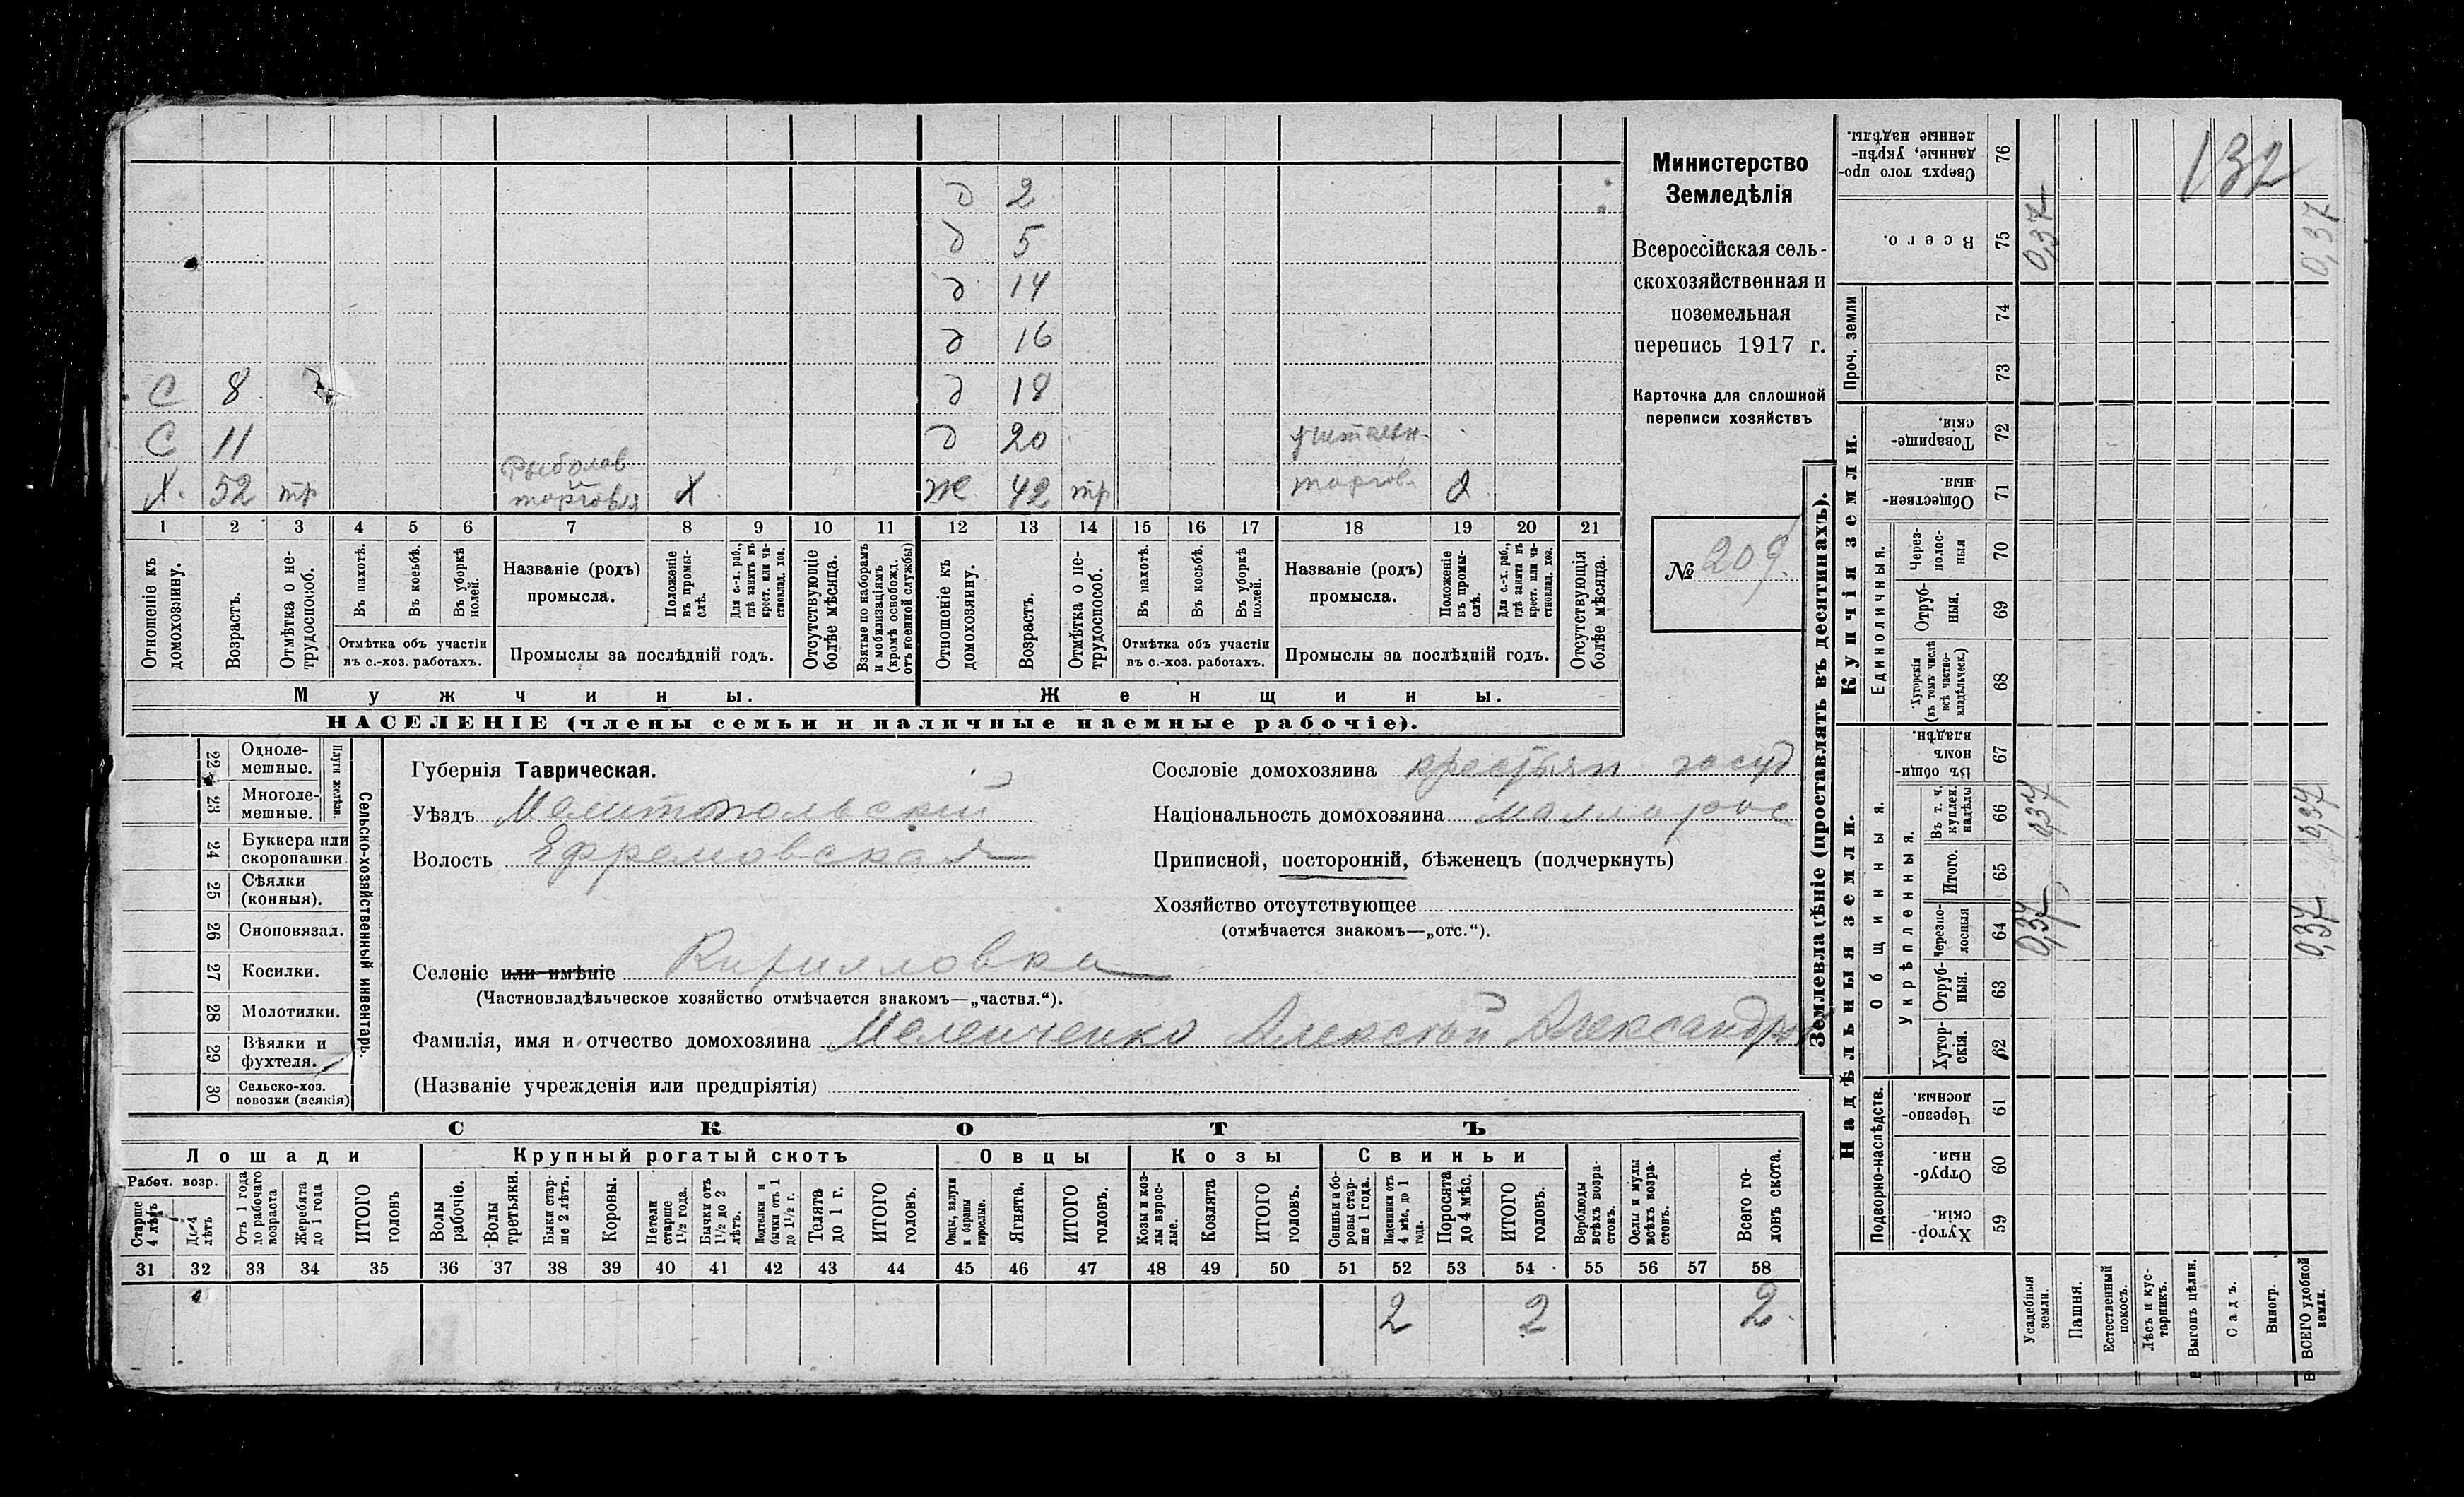 д 2
д 5
д 14
д 16
С 8 д 18
С 11 д 20 учительн.
Х. 52 тр Рыболов торговля Х Ж 42 тр торгов.
1 2 3 4 5 6 7 8 9 10 11 12 13 14 15 16 17 18 19 20 21
Отношеніе къ домохозяину.
Возрастъ.
Отмѣтка о нетрудоспособ.
Въ пахотѣ.
Въ косьбѣ.
Въ уборкѣ полей.
Отмѣтка объ участіи
въ с.-хоз. работахъ.
Названіе (родъ)
промысла.
Положеніе въ промыслѣ.
Для с.-х. раб., гдѣ занятъ въ крест. или частновлад. хоз.
Промыслы за послѣдній годъ.
Отсутствующіе болѣе мѣсяца.
Взятые по наборамъ и мобилизаціямъ (кромѣ освобожд. отъ военной службы)
Отношеніе къ домохозяину.
Возрастъ.
Отмѣтка о нетрудоспособ.
Въ пахотѣ.
Въ косьбѣ.
Въ уборкѣ полей.
Отмѣтка объ участіи
въ с.-хоз. работахъ.
Названіе (родъ)
промысла.
Положеніе въ промыслѣ.
Для с.-х. раб., гдѣ занята въ крест. или частновлад. хоз.
Промыслы за послѣдній годъ.
Отсутствующія болѣе мѣсяца.
Мужчины.
Женщины.
НАСЕЛЕНІЕ (члены семьи и наличные наемные рабочіе).
Министерство
Земледѣлія
Всероссійская сель-
скохозяйственная и
поземельная
перепись 1917 г.
Карточка для сплошной
переписи хозяйствъ
№ 209.
Сельско-хозяйственный инвентарь.
Плуги желѣзн.
22 Одноле-
мешные.
23 Многоле-
мешные.
24 Буккера или
скоропашки.
25 Сѣялки
(конныя).
26 Сноповязал.
27 Косилки.
28 Молотилки.
29 Вѣялки и
фухтеля.
30 Сельско-хоз.
повозки (всякія)
Губернія Таврическая.
Уѣздъ Мелитопольскій
Волость Ефремовская
Селеніе или имѣніе Кирилловка
(Частновладѣльческое хозяйство отмѣчается знакомъ—„частвл.“).
Фамилія, имя и отчество домохозяина Меленченко Алексѣй Александров
(Названіе учрежденія или предпріятія)
Сословіе домохозяина крестьян госуд
Національность домохозяина маллорос
Приписной, посторонній, бѣженецъ (подчеркнуть)
Хозяйство отсутствующее
(отмѣчается знакомъ—„отс.“).
СКОТЪ
Лошади
Крупный рогатый скотъ
Овцы
Козы
Свиньи
Рабоч. возр.
Старше 4 лѣтъ
До 4 лѣтъ
Отъ 1 года до рабочаго возраста
Жеребята до 1 года
ИТОГО головъ
Волы рабочіе.
Волы третьяки.
Быки старше 2 лѣтъ.
Коровы.
Нетели старше 1½ года.
Бычки отъ 1½ до 2 лѣтъ.
Подтелки и бычки отъ 1 до 1½ г.
Телята до 1 г.
ИТОГО головъ.
Овцы, валухи и бараны взрослые.
Ягнята.
ИТОГО головъ.
Козы и козлы взрослые.
Козлята
ИТОГО головъ.
Свиньи а боровы старше 1 года.
Подсвинки отъ 4 мѣс. до 1 года.
Поросята до 4 мѣс.
ИТОГО головъ.
Верблюды всѣхъ возрастовъ.
Ослы и мулы всѣхъ возрастовъ.
Всего головъ скота.
31 32 33 34 35 36 37 38 39 40 41 42 43 44 45 46 47 48 49 50 51 52 53 54 55 56 57 58
2 2 2
Землевладѣніе (проставлять въ десятинахъ).
Надѣльныя земли.
Подворно-наслѣдств.
Хуторскія. 59
Отрубныя. 60
Черезполосныя. 61
Общинныя.
Укрѣпленныя.
Хуторскія. 62
Отрубныя. 63
Черезполосныя 64
Итого. 65
Въ т. ч. куплен. надѣлы 66
Въ общинномъ владѣн. 67
Купчія земли.
Единоличныя.
Хуторскія (въ томъ числѣ всѣ частновладѣльческ.) 68
Отрубныя. 69
Черезполосныя 70
Общественныя. 71
Товарищескія. 72
Проч. земли
73
74
Всего. 75
Сверхъ того проданные, укрѣпленные надѣлы. 76
132
0,37 0,37
0,37 0,37
0,37 0,37
Усадебныя земли.
Пашня.
Естественный покосъ.
Лѣсъ и кустарникъ.
Выгонъ цѣлин.
Садъ.
Виногр.
ВСЕГО удобной земли.